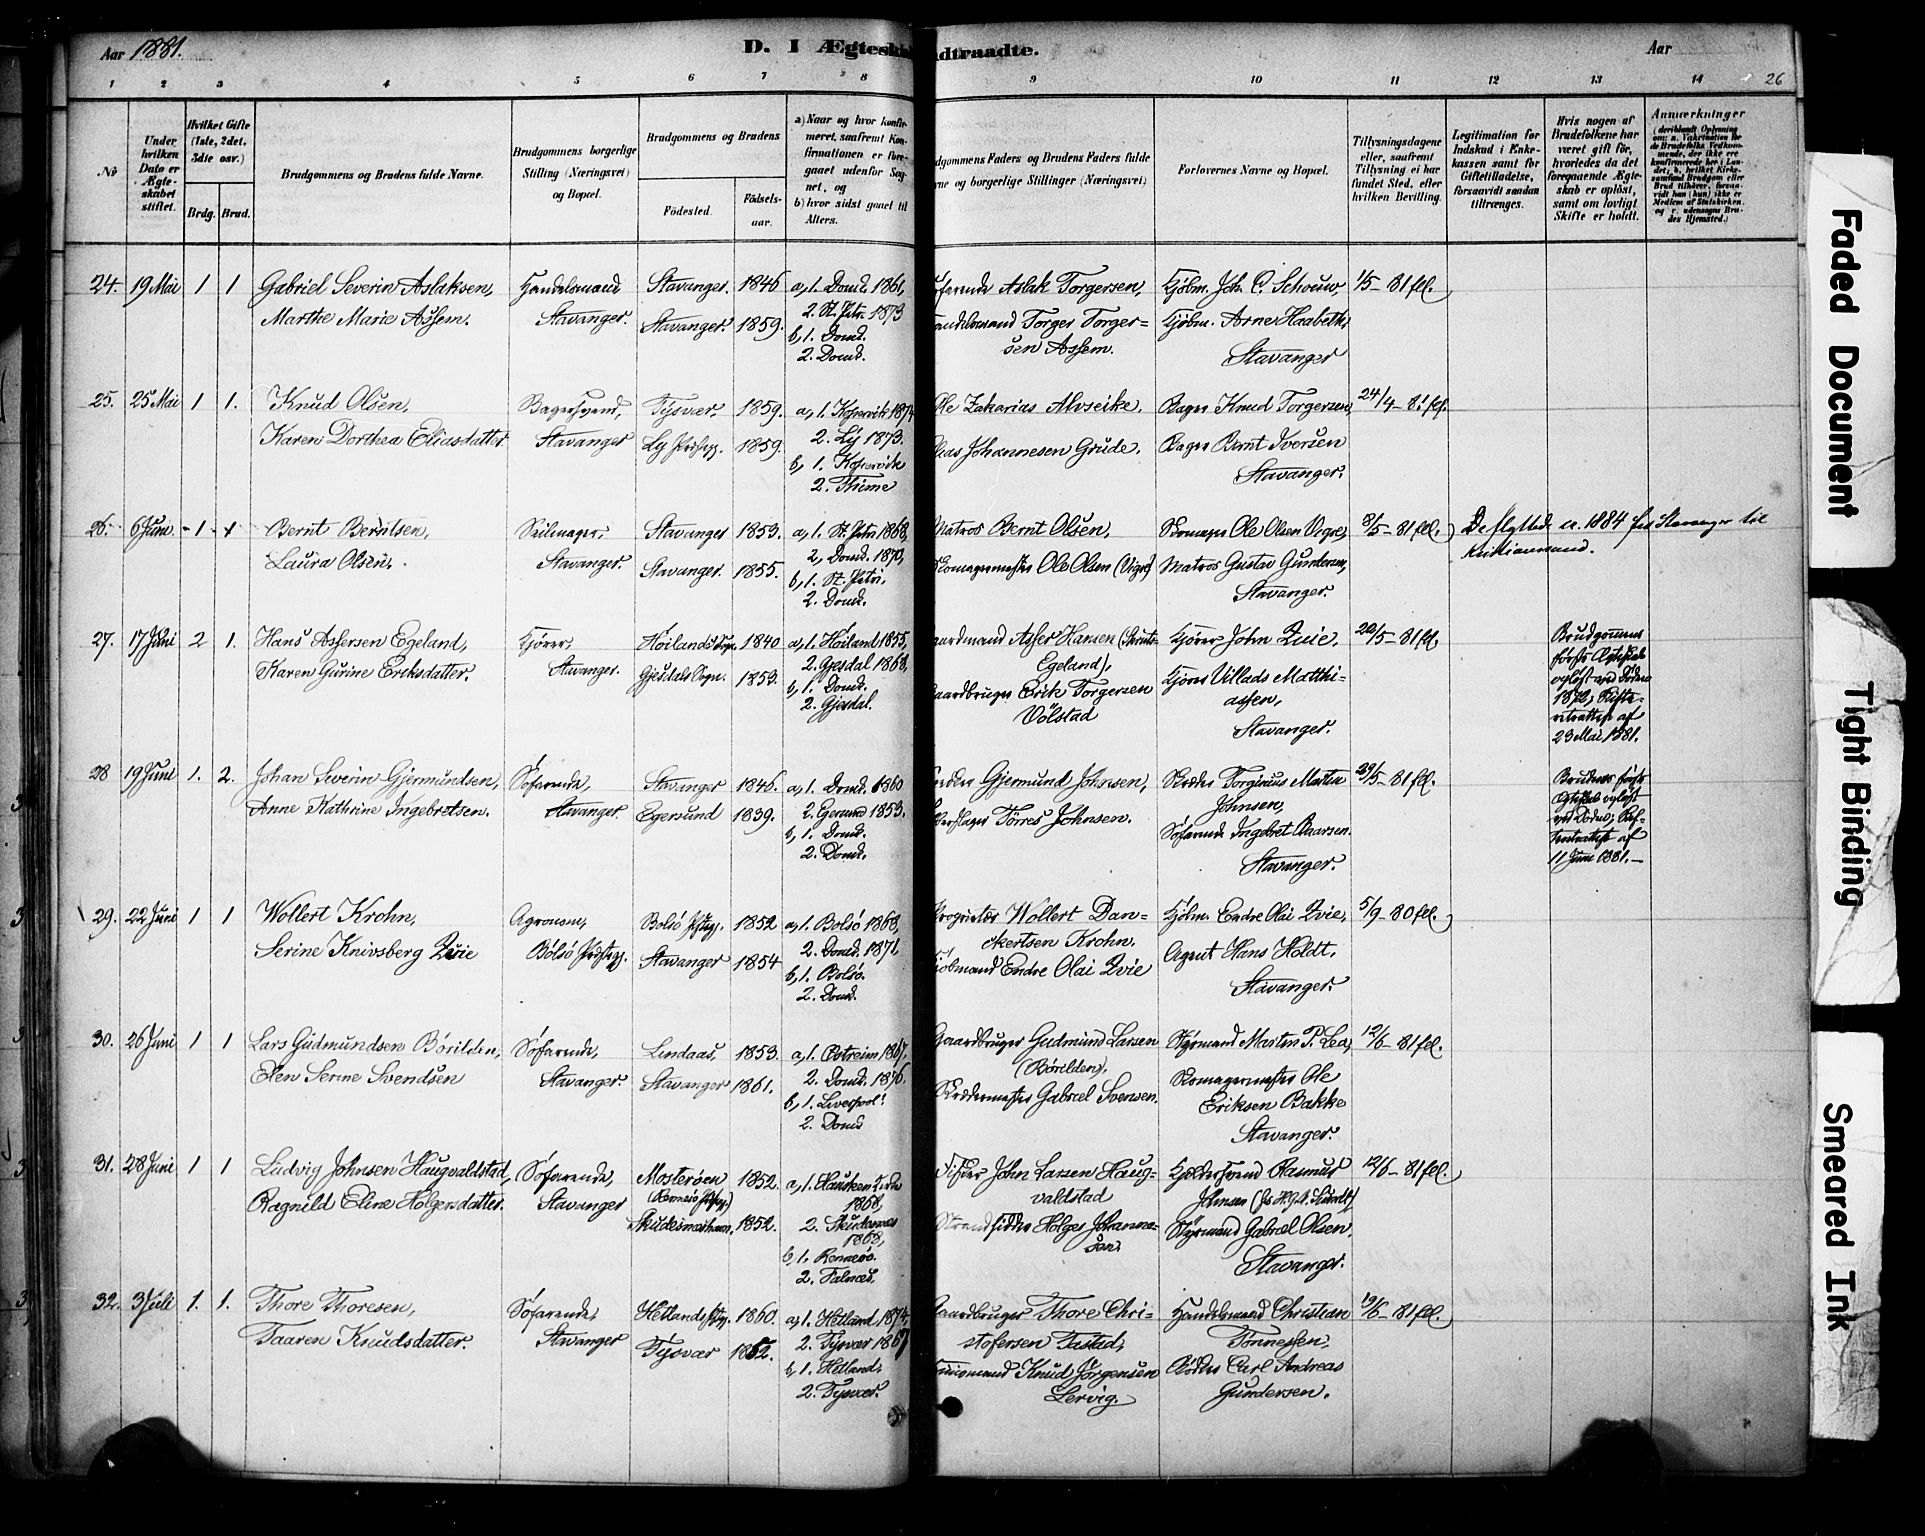 Aar 1881.
D. I Ægtesk
dtraadte.
Aar
1 2 3 4 5 6 7 8 9 10 11 12 13 14 26
No
Under hvilken Dato er Ægteskabet stiftet.
Hvilket Gifte (1ste, 2det, 3die osv.)
Brdg. Brud.
Brudgommens og Brudens fulde Navne.
Brudgommens borgerlige Stilling (Næringsvei) og Bopæl.
Brudgommens og Brudens
Födested.
Födselsaar.
a) Naar og hvor konfirmeret, saafremt Konfirmationen er foregaaet udenfor Sognet, og
b) hvor sidst gaaet til Alters.
dgommens Faders og Brudens Faders fulde
ne og borgerlige Stillinger (Næringsvei)
Forlovernes Navne og Bopæl.
Tillysningsdagene eller, saafremt Tillysning ei har fundet Sted, efter hvilken Bevilling.
Legitimation for Indskud i Enkekassen samt for Giftetilladelse, forsaavidt saadan tiltrænges.
Hvis nogen af Brudefolkene har været gift för, hvorledes da det foregaaende Ægteskab er oplöst, samt om lovligt Skifte er holdt.
Anmærkninger
24. 19 Mai 1 1 Gabriel Severin Aslaksen, Handelsmand Stavanger. 1846 a, 1. Domk. 1861, Aslak Torgersen, Kjöbm. Joh. C. Schouw, 1/5 – 81 fel.
Marthe Marie Assem. Stavanger. Stavanger. 1859. 2. St. Petr. 1873 Torger Torger= Kjöbm. Arne Haabeth,
b, 1. Domk. sen Assem. Stavanger
2. Domk.
25. 25 Mai 1 1. Knud Olsen, Bagersvend, Tysvær, 1859. a, 1. Kopervik 1874 Ole Zakarias Alvseike. Bager Knud Torgersen 24/4 – 81 fel.
Karen Dorthea Eliasdatter. Stavanger 1859. 2. Ly 1873. Johannesen Grude. Bager Bernt Iversen
b, 1. Kopervik Stavanger.
2. Thime
26. 6 Juni 1 1 Bernt Berntsen, Seilmager, Stavanger 1853. a, 1. St. Petri 1868, Matros Bernt Olsen, Skomager Ole Olsen Vigre, 8/5 – 81 fel. De flyttede 1884 fra Stavanger til
Laura Olsen. Stavanger. Stavanger. 1855. 2, Domk. 1870, Skomagermester Ole Olsen (Vigre) Matros Gustav Gundersen, Kristiansand.
b, 1. St. Petri. Stavanger.
2. Domk.
27. 17 Juni 2 1. Hans Assersen Egeland, Kjörer, Höilands Sogn. 1840 a, 1. Höiland 1855, Asser Hansen Kjörer John Qvie, 22/5 – 81 fel. Brudgommens
Karen Gurine Eriksdatter. Stavanger. Gjesdals Sogn. 1853. 2. Gjesdal 1868, Egeland), Kjörer Villads Matthi= förste Ægteskab
b, 1. Domk. Gaardbruger Erik Torgersen assen, oplöst ved Döden
2. Gjesdal. Völstad Stavanger. 1872, Skifte=
af
23 Mai 1881.
28 19 Juni 1. 2. Johan Severin Gjermundsen, Söfarende, Stavanger 1846. a, 1. Domk. 1860 Gjermund Johnsen, Torginius Martin 29/5 – 81 fel. Brudens förste
Anne Kathrine Ingebretsen. Stavanger. Egersund 1839. 2. Egersund 1853. Törres Johnsen. Johnsen, Ægteskab oplöst
b, 1. Domk. Söfarende Ingebret ved Döden,
2. Domk. Stavanger. af
11 Juni 1881. –
29. 22 Juni 1 1 Wollert Krohn, Agronom, Bolsö 1852 a, 1. Bolsö 1868, Proprietær Wollert Dan= Kjöbm. Endre Olai Qvie, 5/9 – 80 fel.
Serine Knivsberg Qvie Bolsö Prstegj. Stavanger 1854 2. Domk. 1871, ckertsen Krohn. Agent Hans Holdt,
b, 1. Bolsö. Kjöbmand Endre Olai Qvie Stavanger.
2. Domk.
30. 26 Juni 1 1 Lars Gudmundsen Börilden, Söfarende, Lindaas, 1853. a, 1. Østreim 1867. Gaardbruger Gudmund Larsen Styrmand Morten P. Lea, 12/6 – 81 fel.
Elen Serine Svendsen Stavanger. Stavanger 1861. 2. Domk. 1876. (Börilden), Skomagermester Ole
b, 1. Liverpool! Skræddermester Gabriel Svensen. Eriksen Bakke
2. Domk Stavanger.
31. 28 Juni 1 1 Ludvig Johnsen Haugvaldstad, Söfarende, Mosteröen 1852. a, 1. Hausken Kirke John Larsen Haug= Rasmus 12/6 – 81 fel.
Ragnild Eline Holgersdatter. Stavanger (Rennesö) 1868, valdstad Johnsen
Skudesneshavn. 1852. 2. Skudesnes Strandsidder Holger Johanne= Styrmand Gabriel Olsen,
1868, sen. Stavanger.
b, 1. Rennesö.
2. Falnæs.
32. 3 Juli 1. 1. Thore Thoresen, Söfarende, Hetlands 1860. a, 1. Hetland 1874, Gaardbruger Thore Chri= Handelsmand Christian 19/6 – 81 fel.
Taaren Knudsdatter. Stavanger Tysvær 1852. 2. Tysvær 1867 stofersen Tastad, Tönnessen,
b, 1. Hetland, Knud Jörgensen Carl Andreas
2. Tysvær. Lervig. Gundersen.
Faded Document
Tight Binding
Smeared Ink